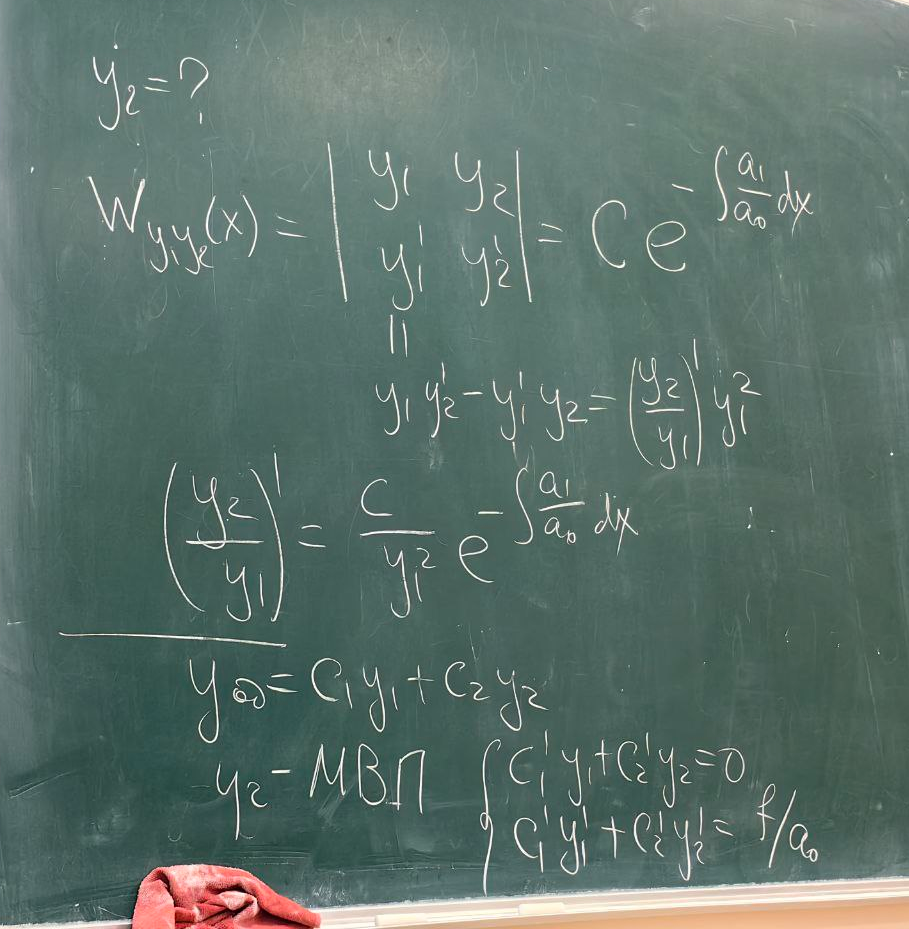 y₂ = ?
W_{y₁y₂}(x) = | y₁ y₂ ; y₁' y₂' | = C e^{-∫ a₁/a₀ dx}
||
y₁ y₂' - y₁' y₂ = (y₂/y₁)' y₁²
(y₂/y₁)' = C/y₁² e^{-∫ a₁/a₀ dx}
= C₁y₁ + C₂y₂
- МВП
{ C₁' y₁ + C₂' y₂ = 0
C₁' y₁' + C₂' y₂' = f/a₀